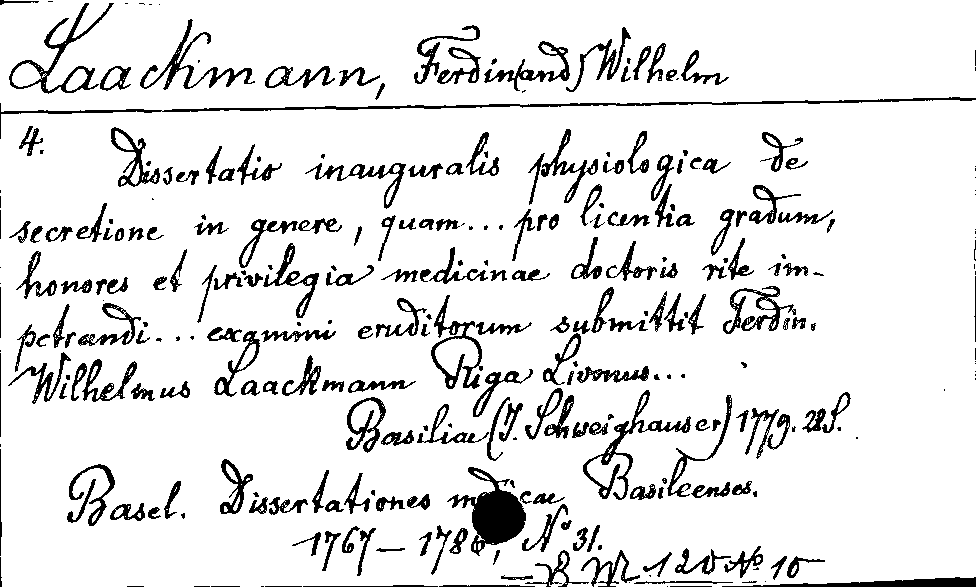 Laackmann, Ferdin(and) Wilhelm
4.
Dissertatio inauguralis physiologica de
secretione in genere, quam... pro licentia gradum,
honores et privilegia medicinae doctoris rite im-
petrandi... examini eruditorum submittit Ferdin.
Wilhelmus Laackmann Riga Livonus...
Basiliae (J. Schweighauser) 1779. 22S.
Basel. Dissertationes medicae Basileenses.
1767 — 1786, No 31.